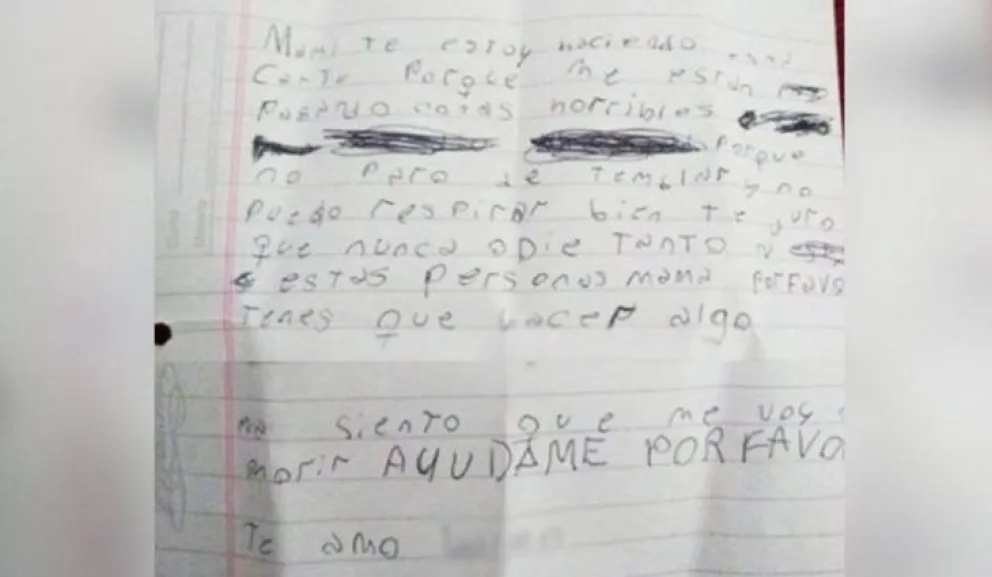 Mami te estoy haciendo esta
Carta Porque me están
Pasando cosas horribles
Porque
no Paro de Temblar y no
Puedo respirar bien Te juro
que nunca odie TanTO a
estas Personas mama Porfavo
Tenes que hacer algo
siento que me voy a
morir AYUDAME POR FAVO
Te amo